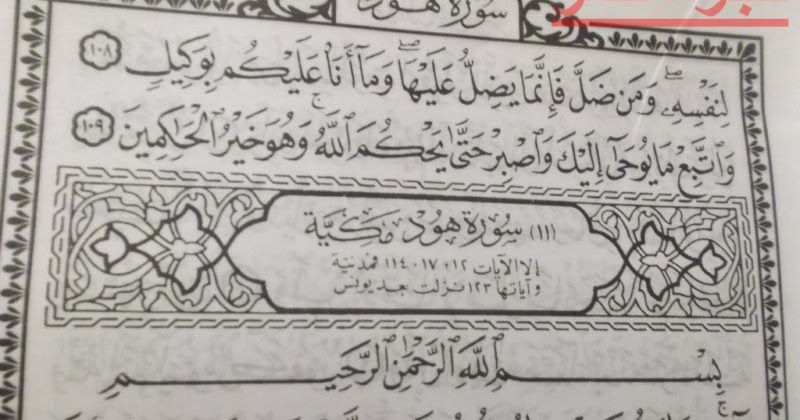 سُورَةُ هُودٍ
لِنَفْسِهِۦ ۖ وَمَن ضَلَّ فَإِنَّمَا يَضِلُّ عَلَيْهَا ۖ وَمَآ أَنَا۠ عَلَيْكُم بِوَكِيلٍ ١٠٨
وَٱتَّبِعْ مَا يُوحَىٰٓ إِلَيْكَ وَٱصْبِرْ حَتَّىٰ يَحْكُمَ ٱللَّهُ ۚ وَهُوَ خَيْرُ ٱلْحَٰكِمِينَ ١٠٩
(١١) سُورَةُ هُودٍ مَكِّيَّة
إلا الآيات ١٢، ١٧، ١١٤ فمدنية
وآياتها ١٢٣ نزلت بعد يونس
بِسْمِ ٱللَّهِ ٱلرَّحْمَٰنِ ٱلرَّحِيمِ